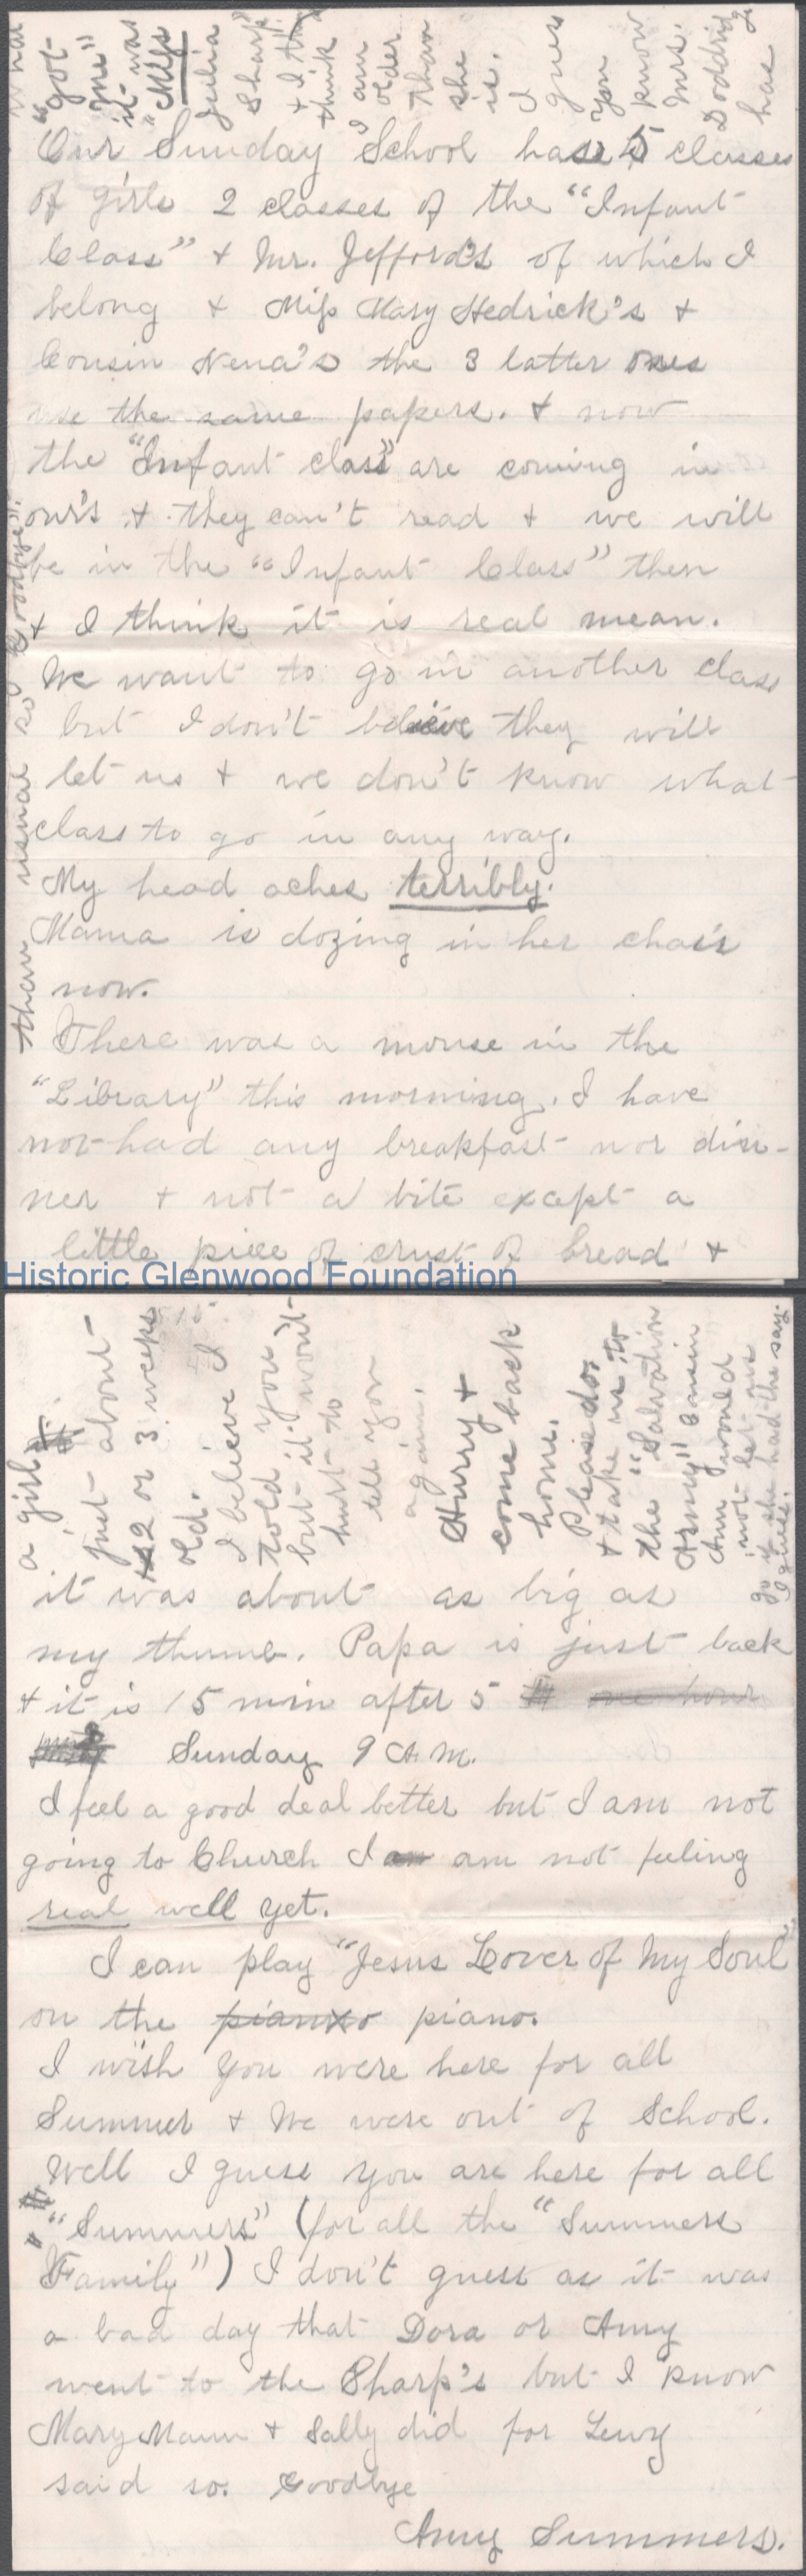 "got
me"
it was
"Miss
Julia
Sharp"
& I
think
I am
older
than
she
is.
I
guess
you
know
Mrs.
Doddridge
has
Our Sunday School has 5 classes
of girls 2 classes of the "Infant
Class" & Mr. Jefford's of which I
belong & Miss Mary Hedrick's &
Cousin Nena's the 3 latter ones
use the same papers. & now
the "Infant class" are coming in
our's & they can't read & we will
be in the "Infant Class" then
& I think it is real mean.
We want to go in another class
but I don't believe they will
let us & we don't know what
class to go in any way.
My head aches terribly.
Mama is dozing in her chair
now.
There was a mouse in the
"Library" this morning. I have
not had any breakfast nor din-
ner & not a bite except a
little piece of crust of bread &
than usual so "Goodbye".
Historic Glenwood Foundation
a girl
just about
2 or 3 weeks
old.
I believe I
told you
but it won't
hurt to
tell you
again.
Hurry &
come back
home.
Please do
& take us to
the "Salvation
Army" Cousin
Ann would
not let us
go if she had the say.
I guess.
it was about as big as
my thumb. Papa is just back
& it is 15 min after 5 one hour
Sunday 9 A.M.
I feel a good deal better but I am not
going to Church I am am not feeling
real well yet.
I can play "Jesus Lover of My Soul"
on the pianxo piano.
I wish you were here for all
Summer & We were out of School.
Well I guess you are here for all
"Summers" (for all the "Summers
Family") I don't guess as it was
a bad day that Dora or Amy
went to the Sharp's but I know
Mary Mann & Sally did for Lewy
said so. Goodbye
Amy Summers.